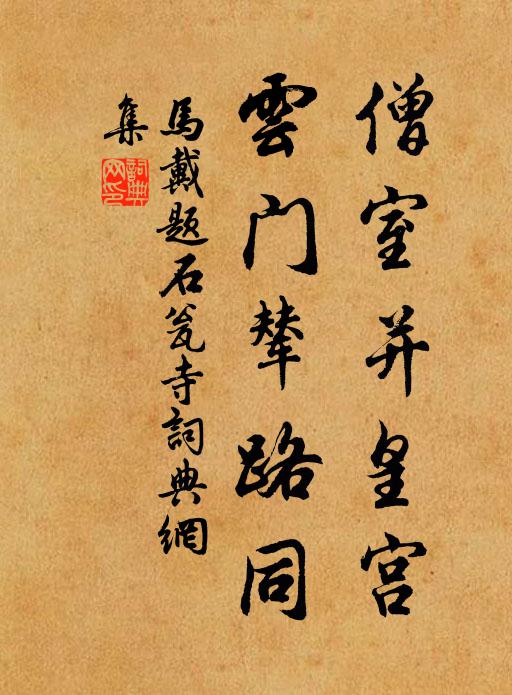 僧室并皇宫
雲门輦路同
馬戴题石瓮寺詞典網
集
詞典网印